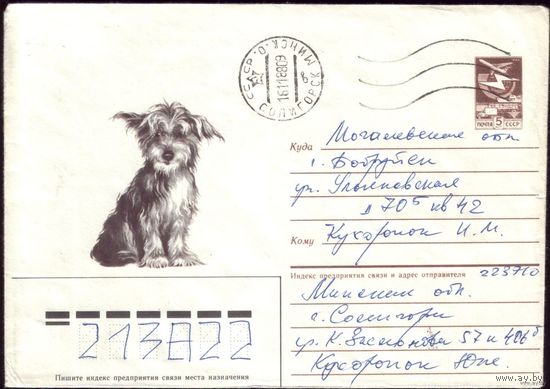 СССР МИНСК.О.
161188 09
в
СОЛИГОРСК
ПОЧТА 5 СССР
Куда Могилевская обл.
г. Бобруйск
ул. Ульяновская
д 70б кв 42
Кому Кухаронок И.М.
Индекс предприятия связи и адрес отправителя 223710
Минская обл.
г. Солигорск
ул. К. 57 к 406
Кухаронок
213822
Пишите индекс предприятия связи места назначения
www.ay.by